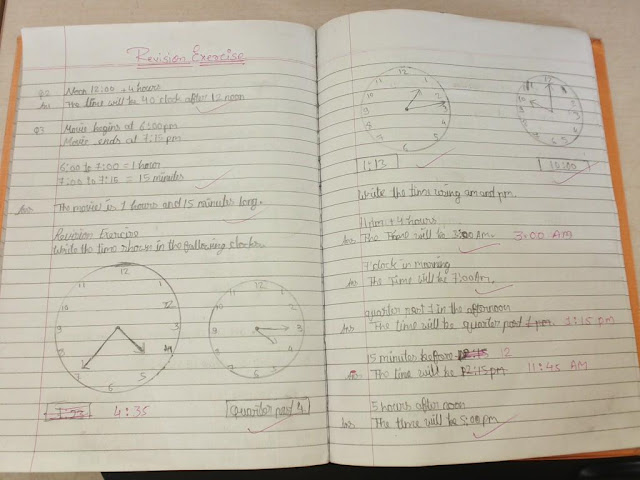 Revision Exercise
Q2 Noon 12:00 + 4 hours
Ans The time will be 4 O clock after 12 noon
Q3 Movie begins at 6:00pm
Movie ends at 7:15 pm
6:00 to 7:00 = 1 hour
7:00 to 7:15 = 15 minutes
Ans The movie is 1 hours and 15 minutes long.
Revision Exercise
Write the time shown in the following clocks.
4:35
Quarter past 4
1:13
10:00
Write the time using am and pm.
11 pm + 4 hours
Ans The Time will be 3:00 AM. 3:00 AM
7'clock in morning
Ans The Time will be 7:00 Am.
quarter past 1 in the afternoon
Ans The time will be quarter past 1 pm. 1:15 pm
15 minutes before 12
Ans The time will be 12:15 pm 11:45 AM
5 hours after noon
Ans The time will be 5:00 pm